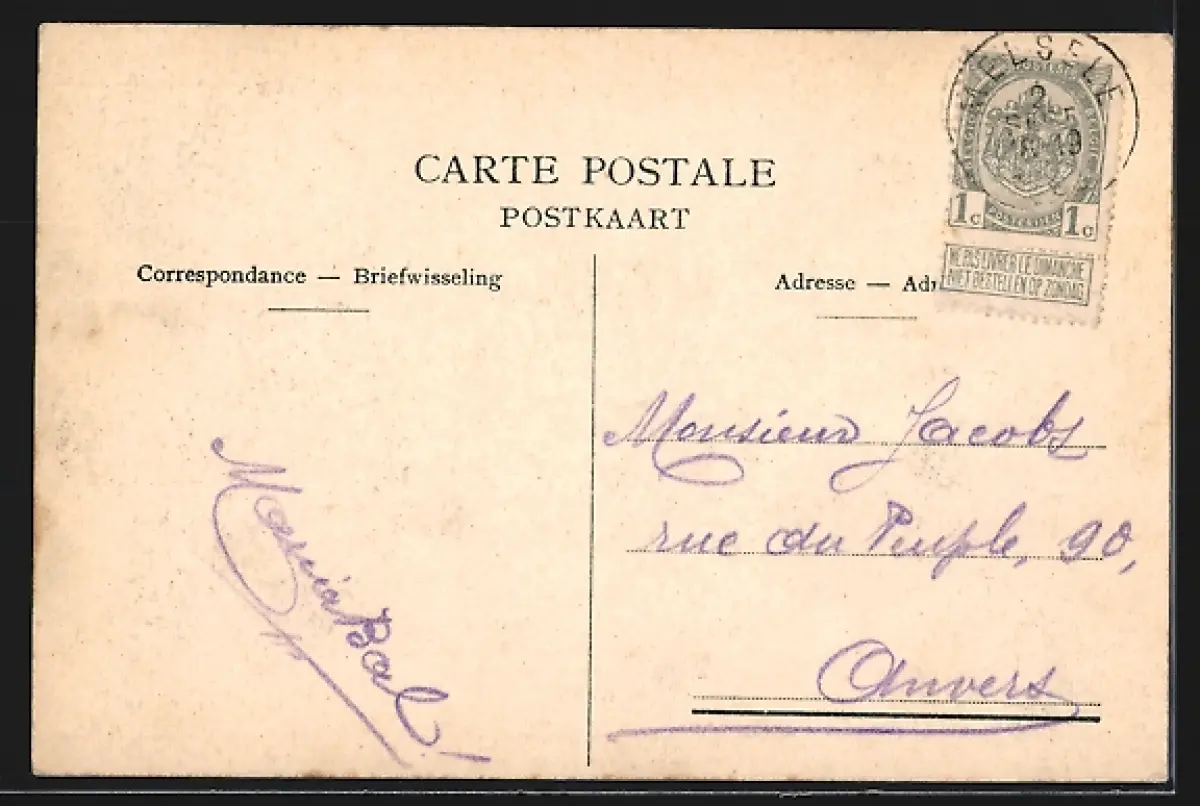 CARTE POSTALE
POSTKAART
Correspondance — Briefwisseling
Adresse — Ad
MELSELE
1c 1c
NE PAS LIVRER LE DIMANCHE
NIET BESTELLEN OP ZONDAG
Monsieur Jacobs
rue du Peuple, 90,
Anvers
Maria Bal